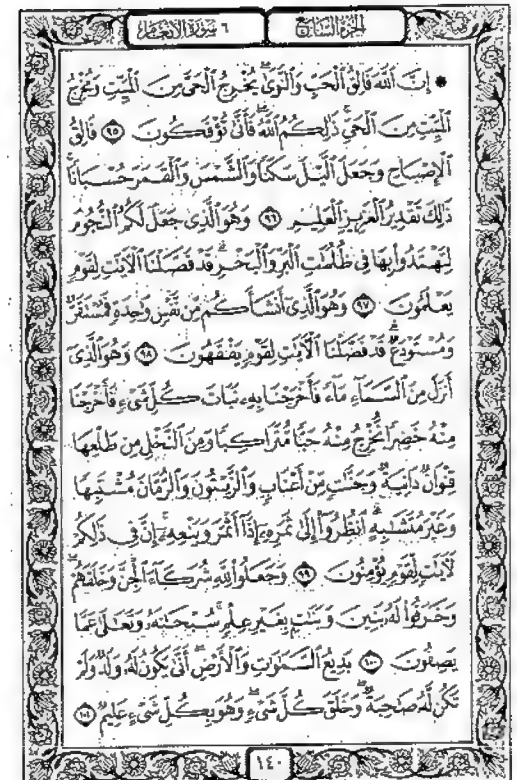 الجزء السابع ٦ سورة الأنعام
۞ إِنَّ ٱللَّهَ فَالِقُ ٱلْحَبِّ وَٱلنَّوَىٰۖ يُخْرِجُ ٱلْحَىَّ مِنَ ٱلْمَيِّتِ وَمُخْرِجُ
ٱلْمَيِّتِ مِنَ ٱلْحَىِّۚ ذَٰلِكُمُ ٱللَّهُۖ فَأَنَّىٰ تُؤْفَكُونَ ٩٥ فَالِقُ
ٱلْإِصْبَاحِ وَجَعَلَ ٱلَّيْلَ سَكَنًا وَٱلشَّمْسَ وَٱلْقَمَرَ حُسْبَانًاۚ
ذَٰلِكَ تَقْدِيرُ ٱلْعَزِيزِ ٱلْعَلِيمِ ٩٦ وَهُوَ ٱلَّذِى جَعَلَ لَكُمُ ٱلنُّجُومَ
لِتَهْتَدُوا۟ بِهَا فِى ظُلُمَٰتِ ٱلْبَرِّ وَٱلْبَحْرِۗ قَدْ فَصَّلْنَا ٱلْءَايَٰتِ لِقَوْمٍ
يَعْلَمُونَ ٩٧ وَهُوَ ٱلَّذِىٓ أَنشَأَكُم مِّن نَّفْسٍ وَٰحِدَةٍ فَمُسْتَقَرٌّ
وَمُسْتَوْدَعٌۗ قَدْ فَصَّلْنَا ٱلْءَايَٰتِ لِقَوْمٍ يَفْقَهُونَ ٩٨ وَهُوَ ٱلَّذِىٓ
أَنزَلَ مِنَ ٱلسَّمَآءِ مَآءً فَأَخْرَجْنَا بِهِۦ نَبَاتَ كُلِّ شَىْءٍ فَأَخْرَجْنَا
مِنْهُ خَضِرًا نُّخْرِجُ مِنْهُ حَبًّا مُّتَرَاكِبًا وَمِنَ ٱلنَّخْلِ مِن طَلْعِهَا
قِنْوَانٌ دَانِيَةٌ وَجَنَّٰتٍ مِّنْ أَعْنَابٍ وَٱلزَّيْتُونَ وَٱلرُّمَّانَ مُشْتَبِهًا
وَغَيْرَ مُتَشَٰبِهٍۗ ٱنظُرُوٓا۟ إِلَىٰ ثَمَرِهِۦٓ إِذَآ أَثْمَرَ وَيَنْعِهِۦٓۚ إِنَّ فِى ذَٰلِكُمْ
لَءَايَٰتٍ لِّقَوْمٍ يُؤْمِنُونَ ٩٩ وَجَعَلُوا۟ لِلَّهِ شُرَكَآءَ ٱلْجِنَّ وَخَلَقَهُمْۖ
وَخَرَقُوا۟ لَهُۥ بَنِينَ وَبَنَٰتٍۭ بِغَيْرِ عِلْمٍۚ سُبْحَٰنَهُۥ وَتَعَٰلَىٰ عَمَّا
يَصِفُونَ ١٠٠ بَدِيعُ ٱلسَّمَٰوَٰتِ وَٱلْأَرْضِۖ أَنَّىٰ يَكُونُ لَهُۥ وَلَدٌ وَلَمْ
تَكُن لَّهُۥ صَٰحِبَةٌۖ وَخَلَقَ كُلَّ شَىْءٍۖ وَهُوَ بِكُلِّ شَىْءٍ عَلِيمٌ ١٠١
١٤٠